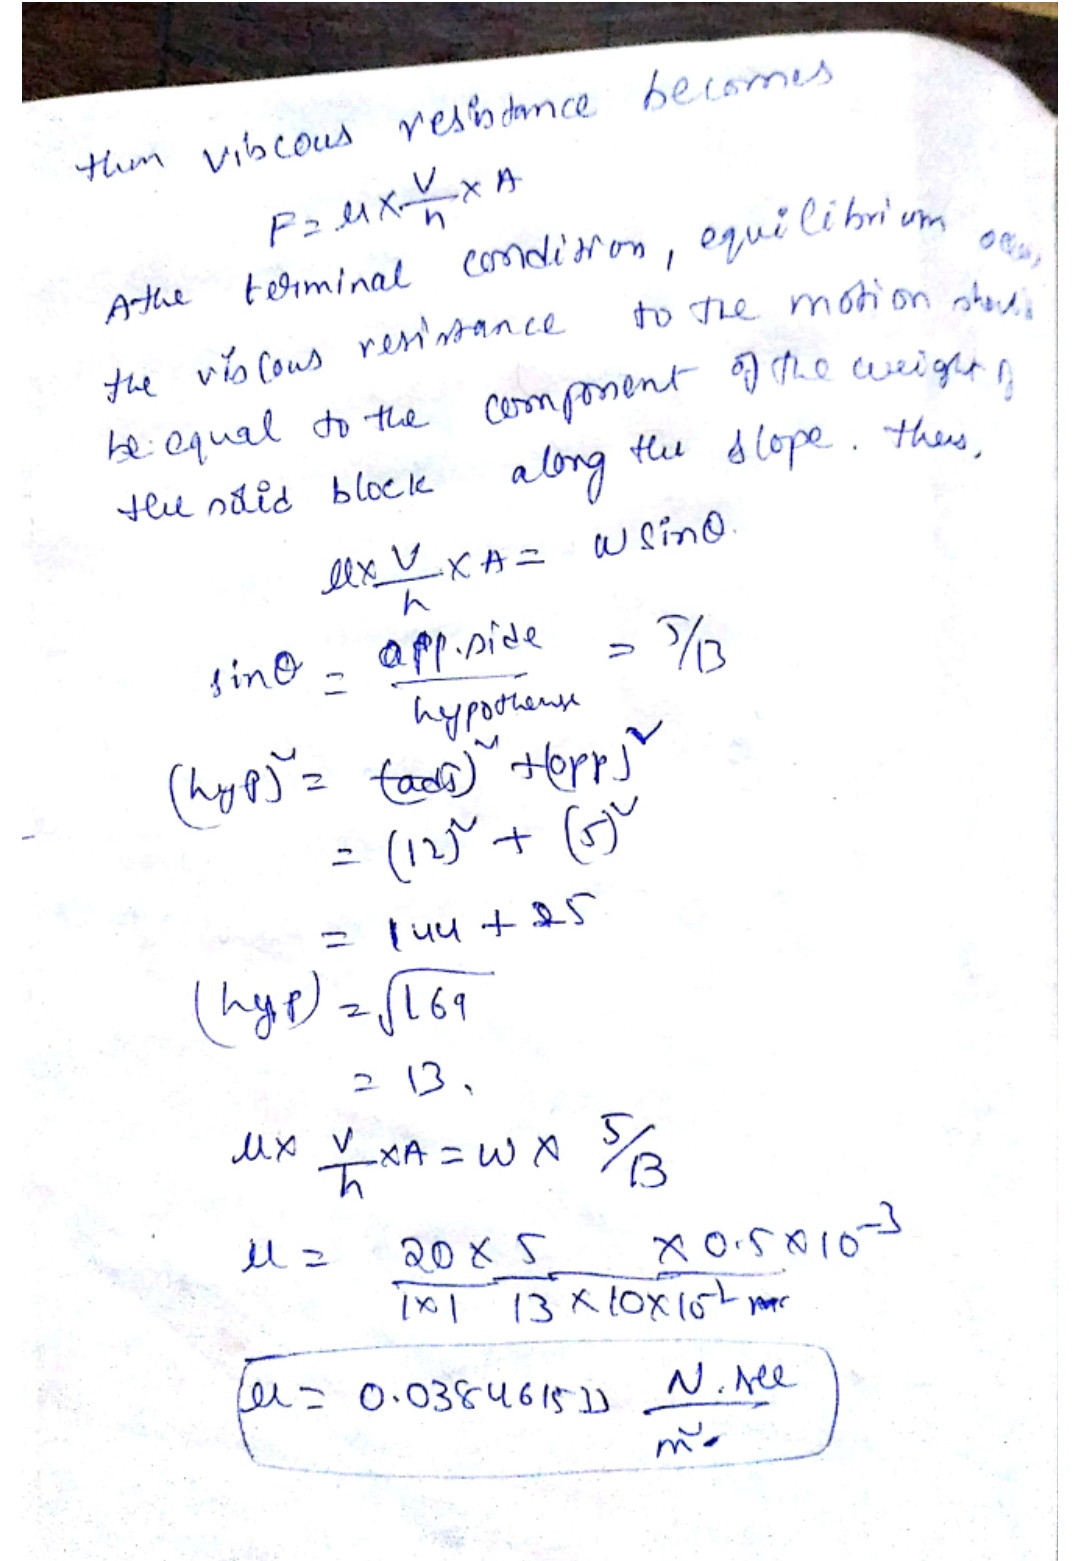 then viscous resistance becomes
F = μ × V/h × A
At the terminal condition, equilibrium
the viscous resistance to the motion should
be equal to the component of the weight of
the solid block along the slope. thus,
μ × V/h × A = W sinθ.
sinθ = opp.side/hypothenuse = 5/13
(hyp)² = (adj)² + (opp)²
= (12)² + (5)²
= 144 + 25
(hyp) = √169
= 13.
μ × V/h × A = W × 5/13
μ = 20 × 5 × 0.5 × 10⁻³
1×1 13 × 10 × 10⁻²
μ = 0.03846153 N.sec/m².